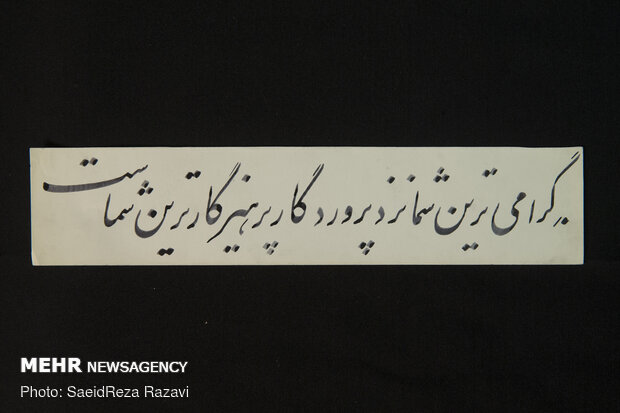 گرامی ترین شما نزد پروردگار پرهیزگارترین شماست
MEHR NEWSAGENCY
Photo: SaeidReza Razavi